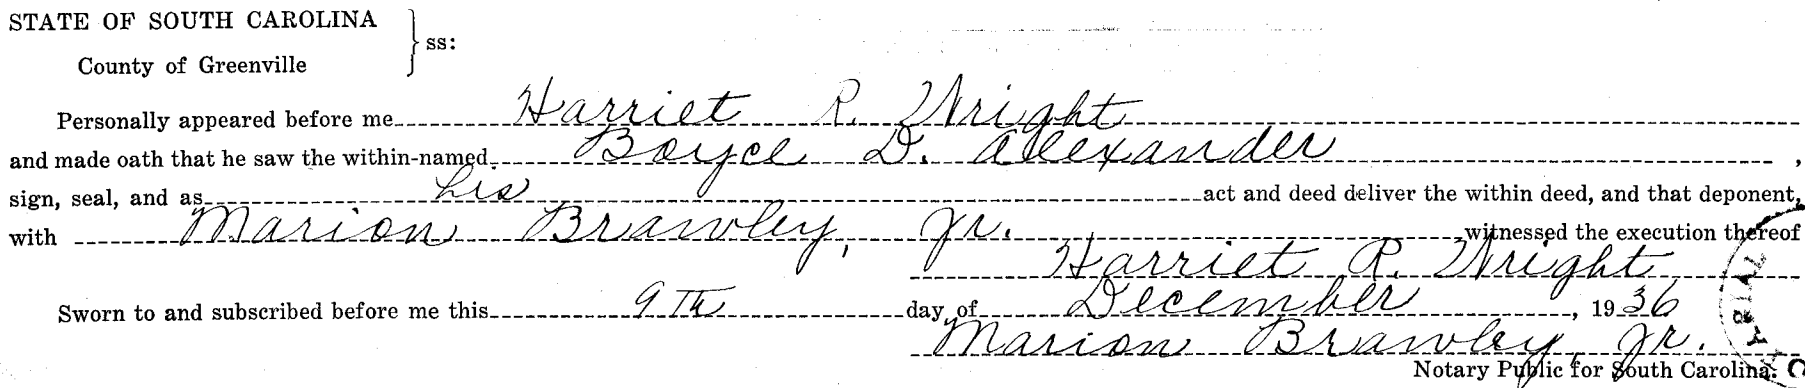 STATE OF SOUTH CAROLINA
ss:
County of Greenville
Personally appeared before me Harriet R. Wright
and made oath that he saw the within-named Boyce D. Alexander ,
sign, seal, and as his act and deed deliver the within deed, and that deponent,
with Marion Brawley, Jr. witnessed the execution thereof
Harriet R. Wright
Sworn to and subscribed before me this 9Th day of December , 1936
Marion Brawley, Jr.
Notary Public for South Carolina.